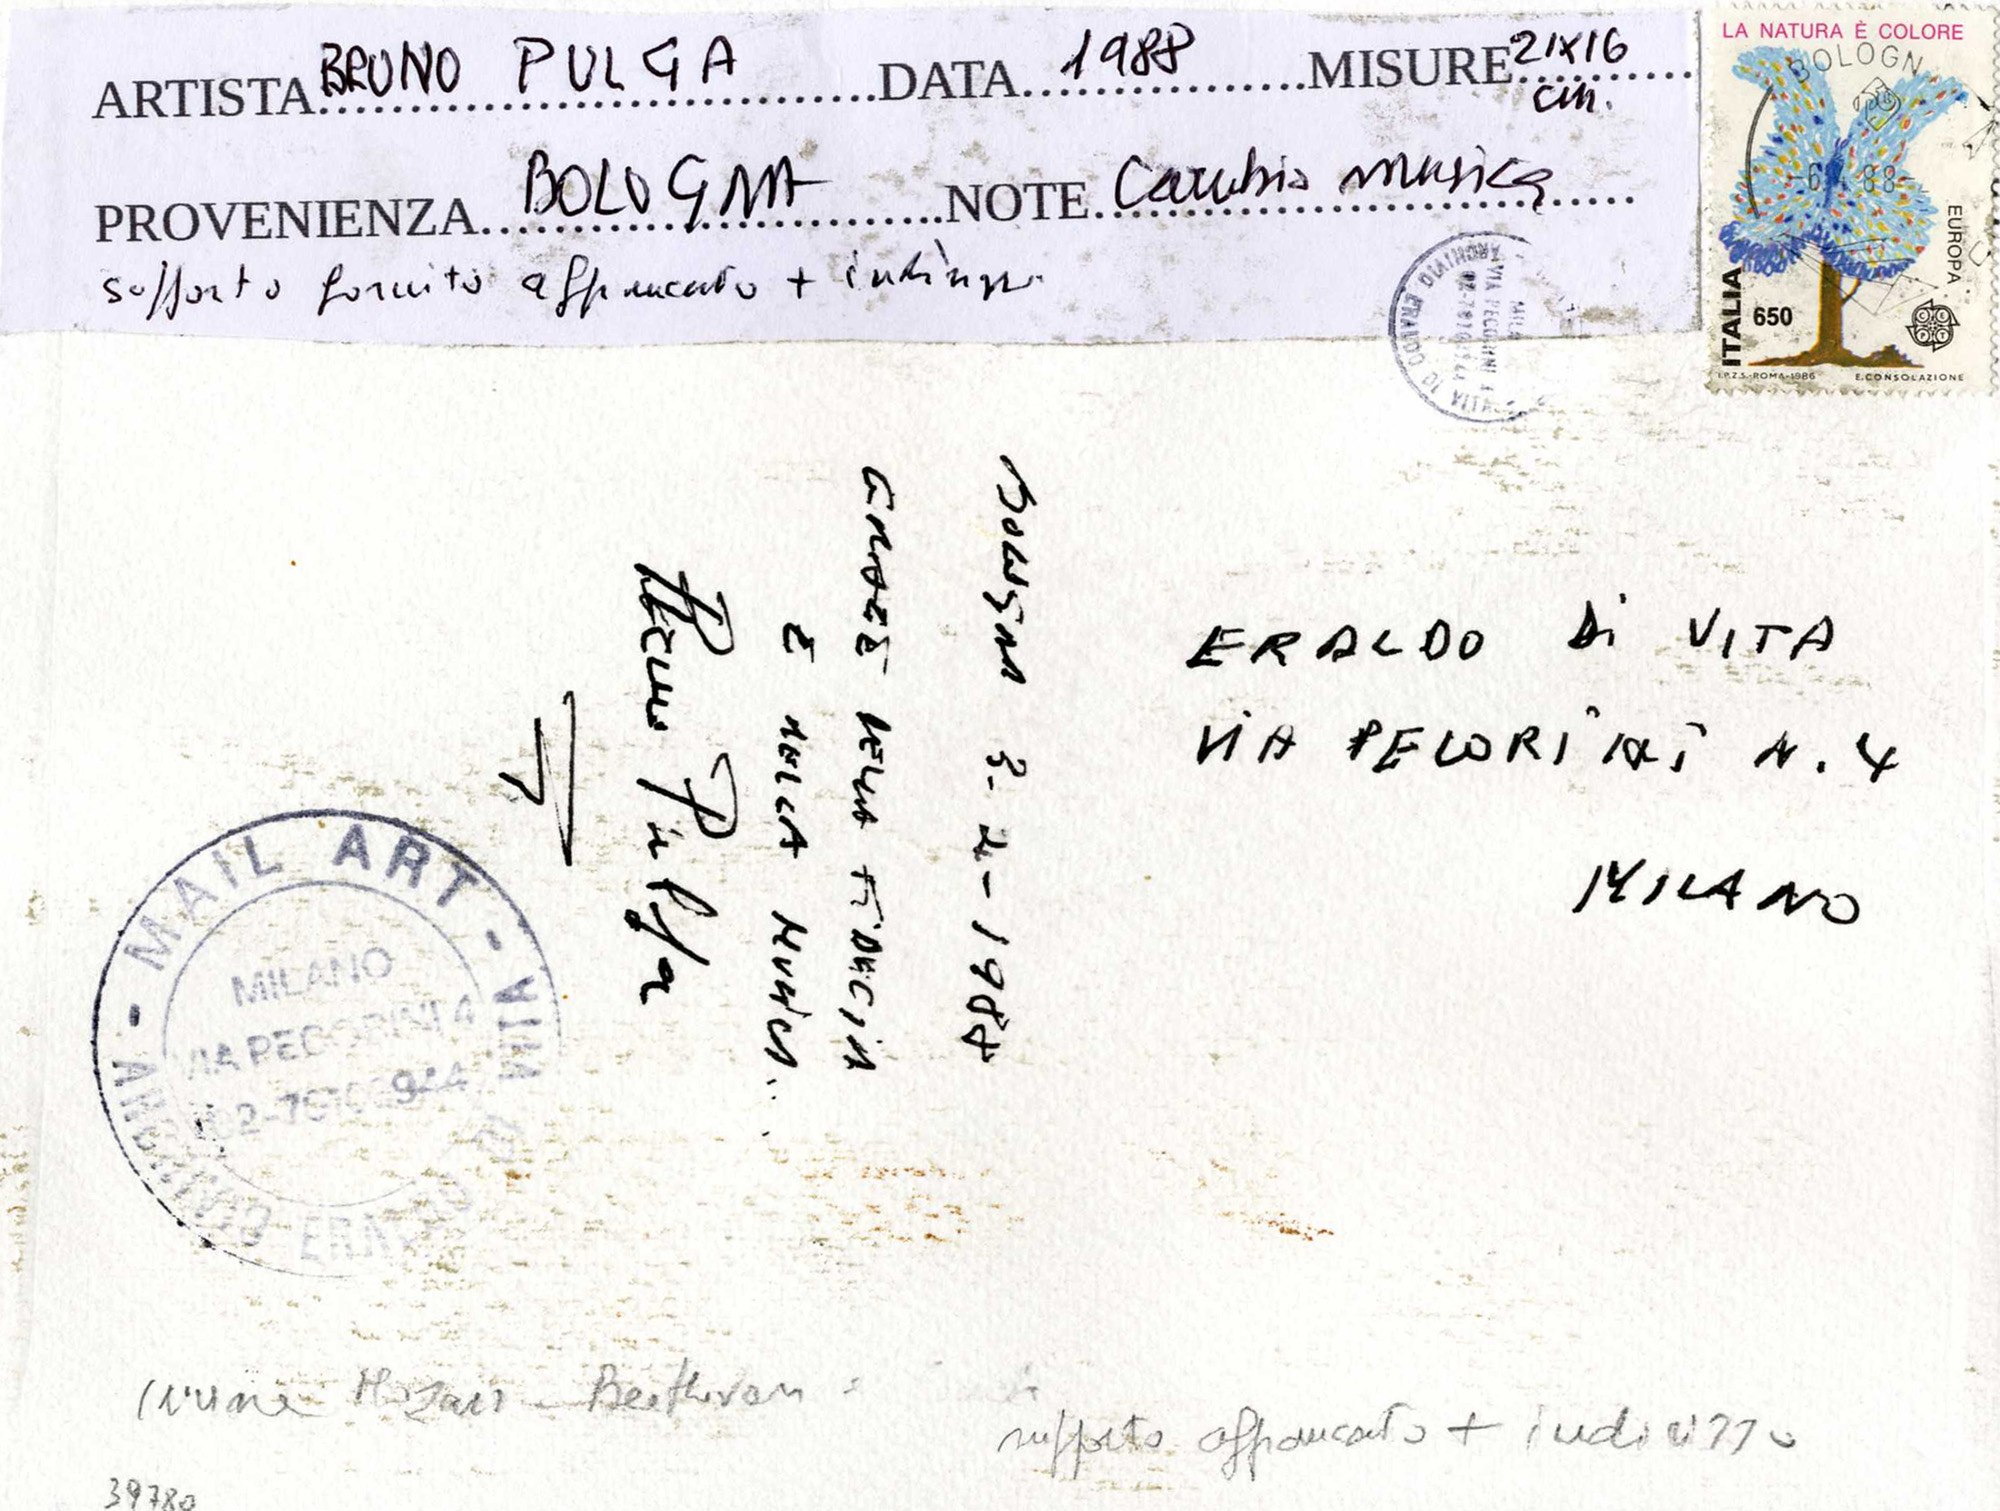 ARTISTA BRUNO PULGA DATA 1988 MISURE 21x16 cm.
PROVENIENZA BOLOGNA NOTE musica
supporto fornito affrancato +
LA NATURA È COLORE
BOLOGN
-6.4.88-
EUROPA
ITALIA
650
I.P.Z.S.-ROMA-1986 E.CONSOLAZIONE
ARCHIVIO ERALDO DI VITA
VIA PECORINI 4
BOLOGNA 3-4-1988
GRAZIE DELLA FIDUCIA
E DELLA MUSICA..
Bruno Pulga
ERALDO Di VITA
ViA PECORiNi N. 4
MILANO
- MAIL ART -
ARCHIVIO ERALDO DI VITA
MILANO
VIA PECORINI 4
Mozart - Beethoven
supporto affrancato + indirizzo
39780